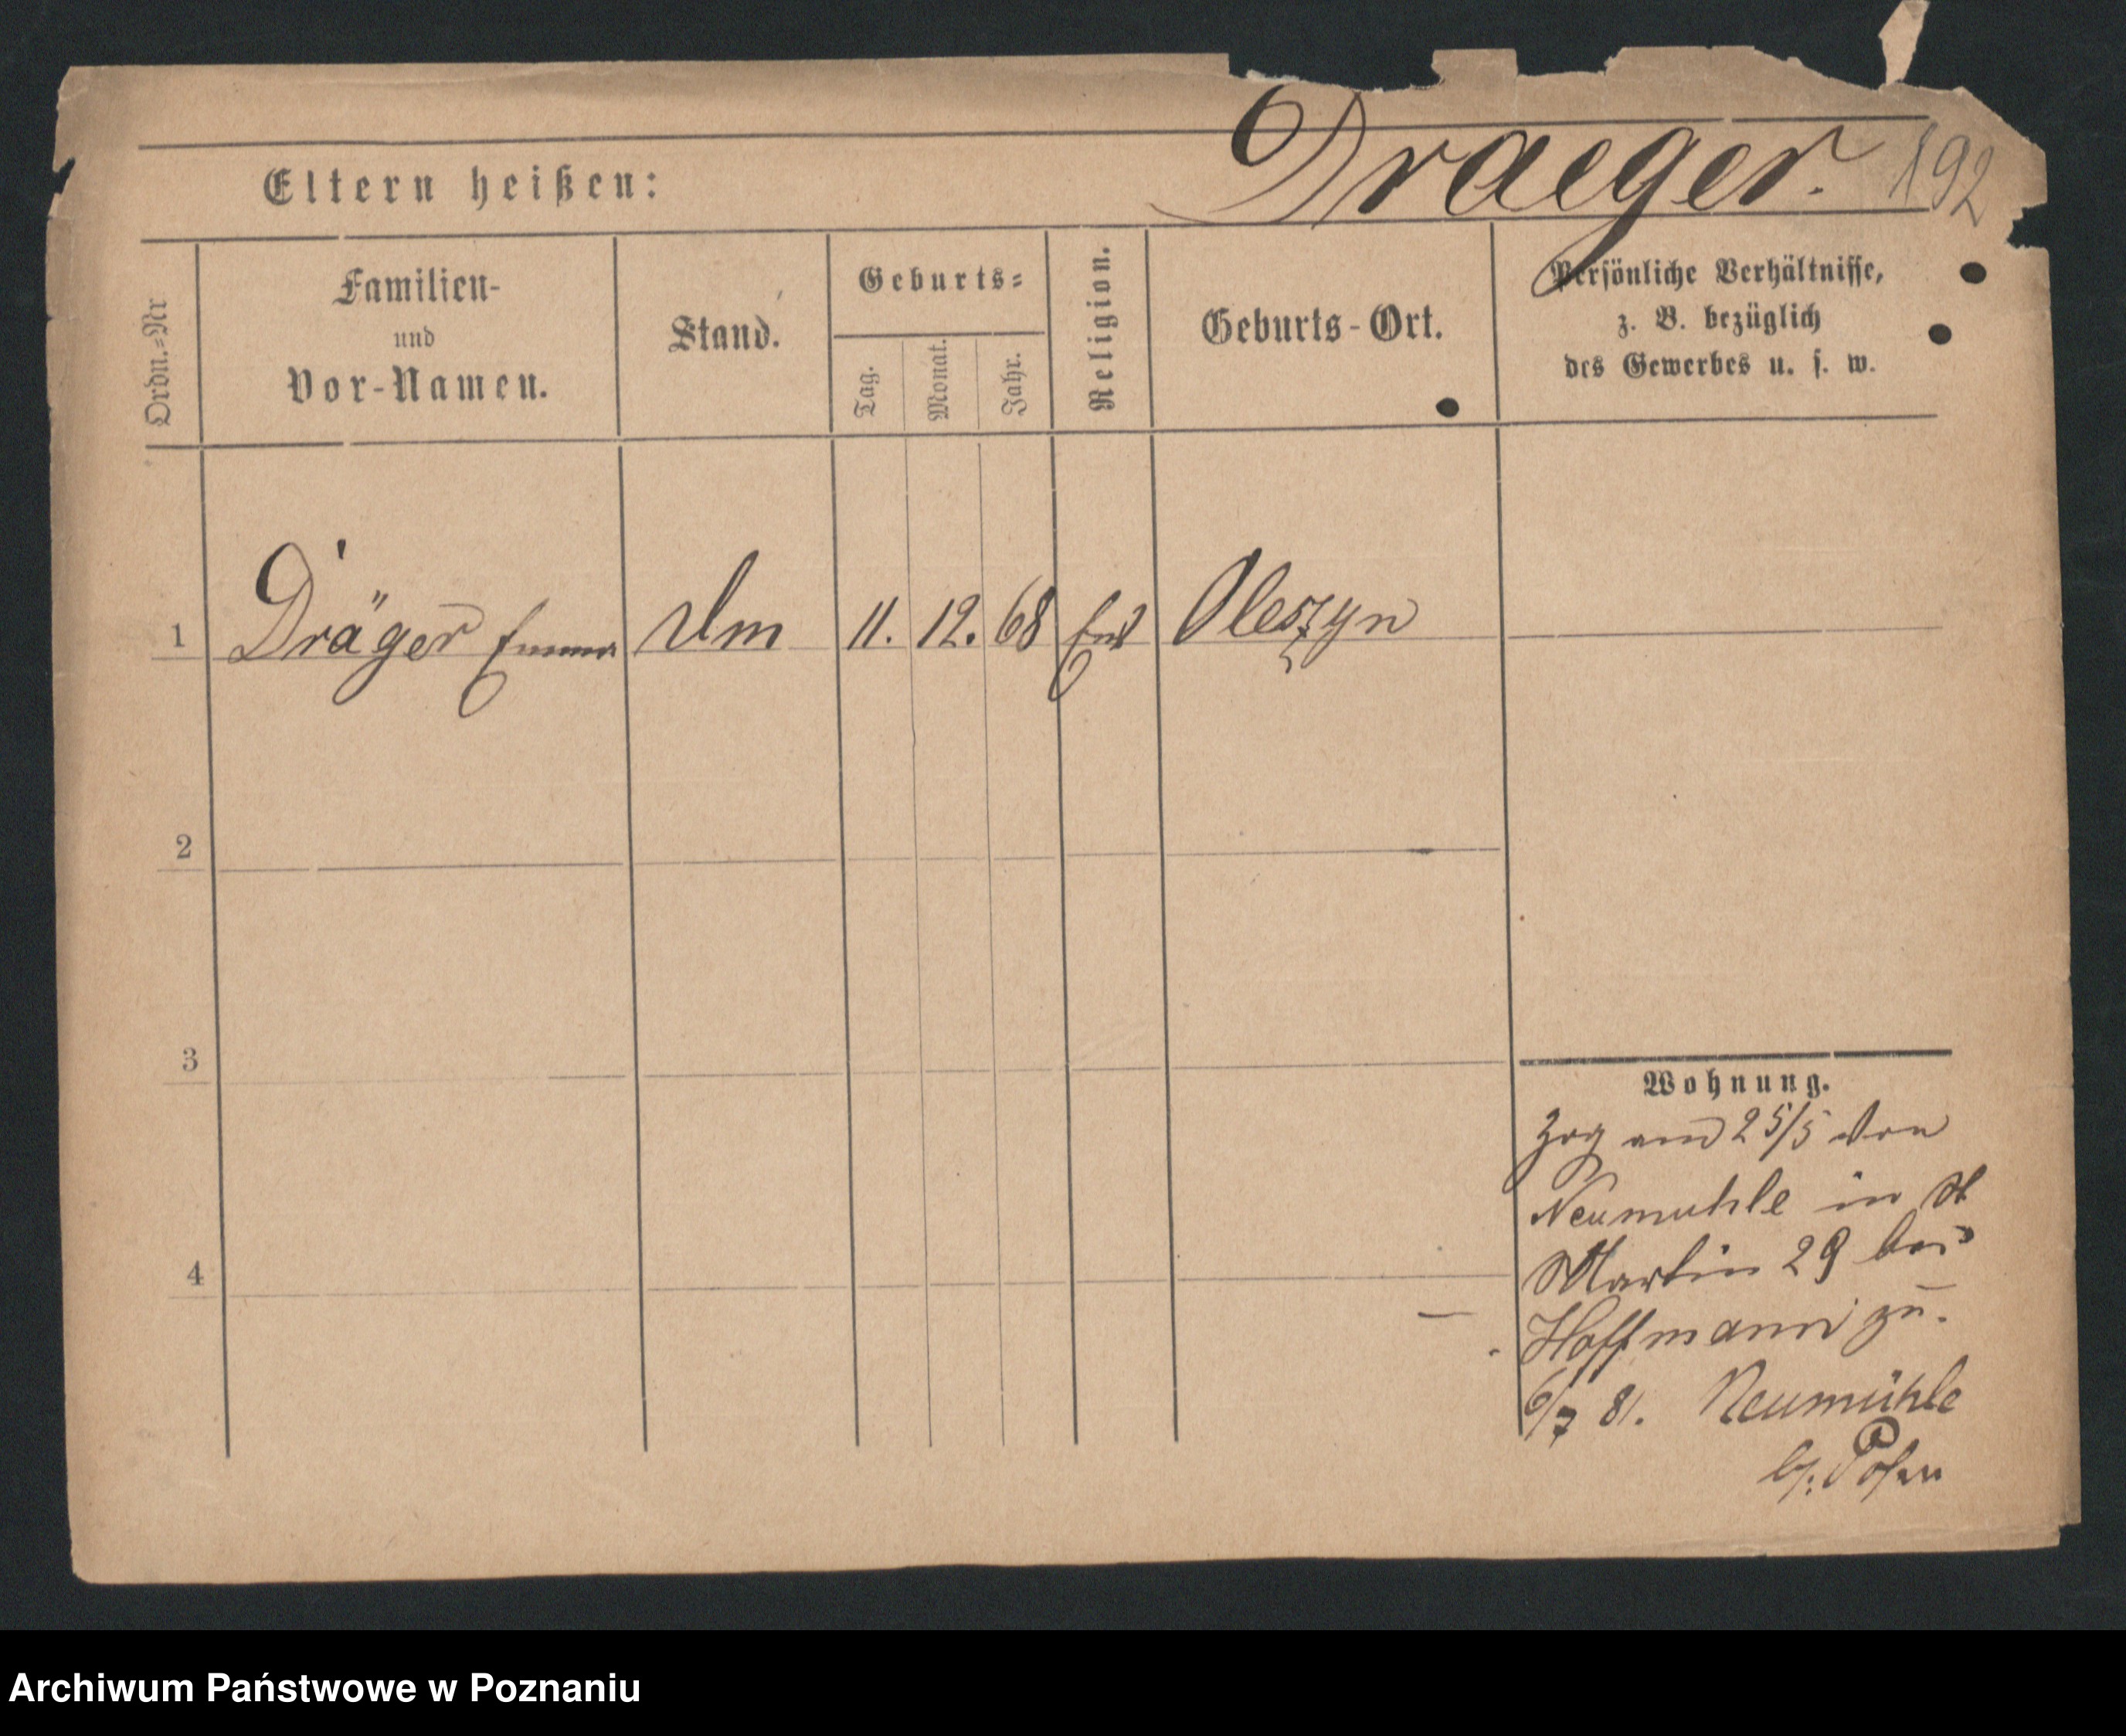 Draeger. 192
Eltern heißen:
Ordn.-Nr
Familien-
und
Vor-Namen.
Stand.
Geburts-
Tag.
Monat.
Jahr.
Religion.
Geburts-Ort.
Persönliche Verhältnisse,
z. B. bezüglich
des Gewerbes u. s. w.
1 Dräger Emma 11. 12. 68 Oleszyn
2
3
4
Wohnung.
Zog am 25/5 von
Neumuhle in St
Martin 29 bei
Hoffmann zu.
6/7 81. Neumühle
b. Posen
Archiwum Państwowe w Poznaniu